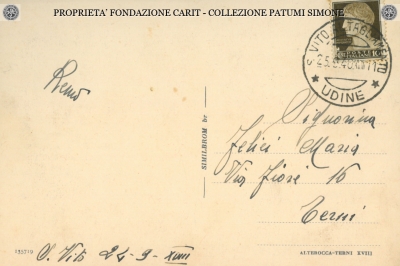 PROPRIETA' FONDAZIONE CARIT - COLLEZIONE PATUMI SIMONE
S. VITO AL TAGLIAMENTO
UDINE
Remo
SIMILBROM br
Signorina
Felici Maria
Via Fiori 16
Terni
S. Vito 24-9-XVIII
ALTEROCCA-TERNI XVIII